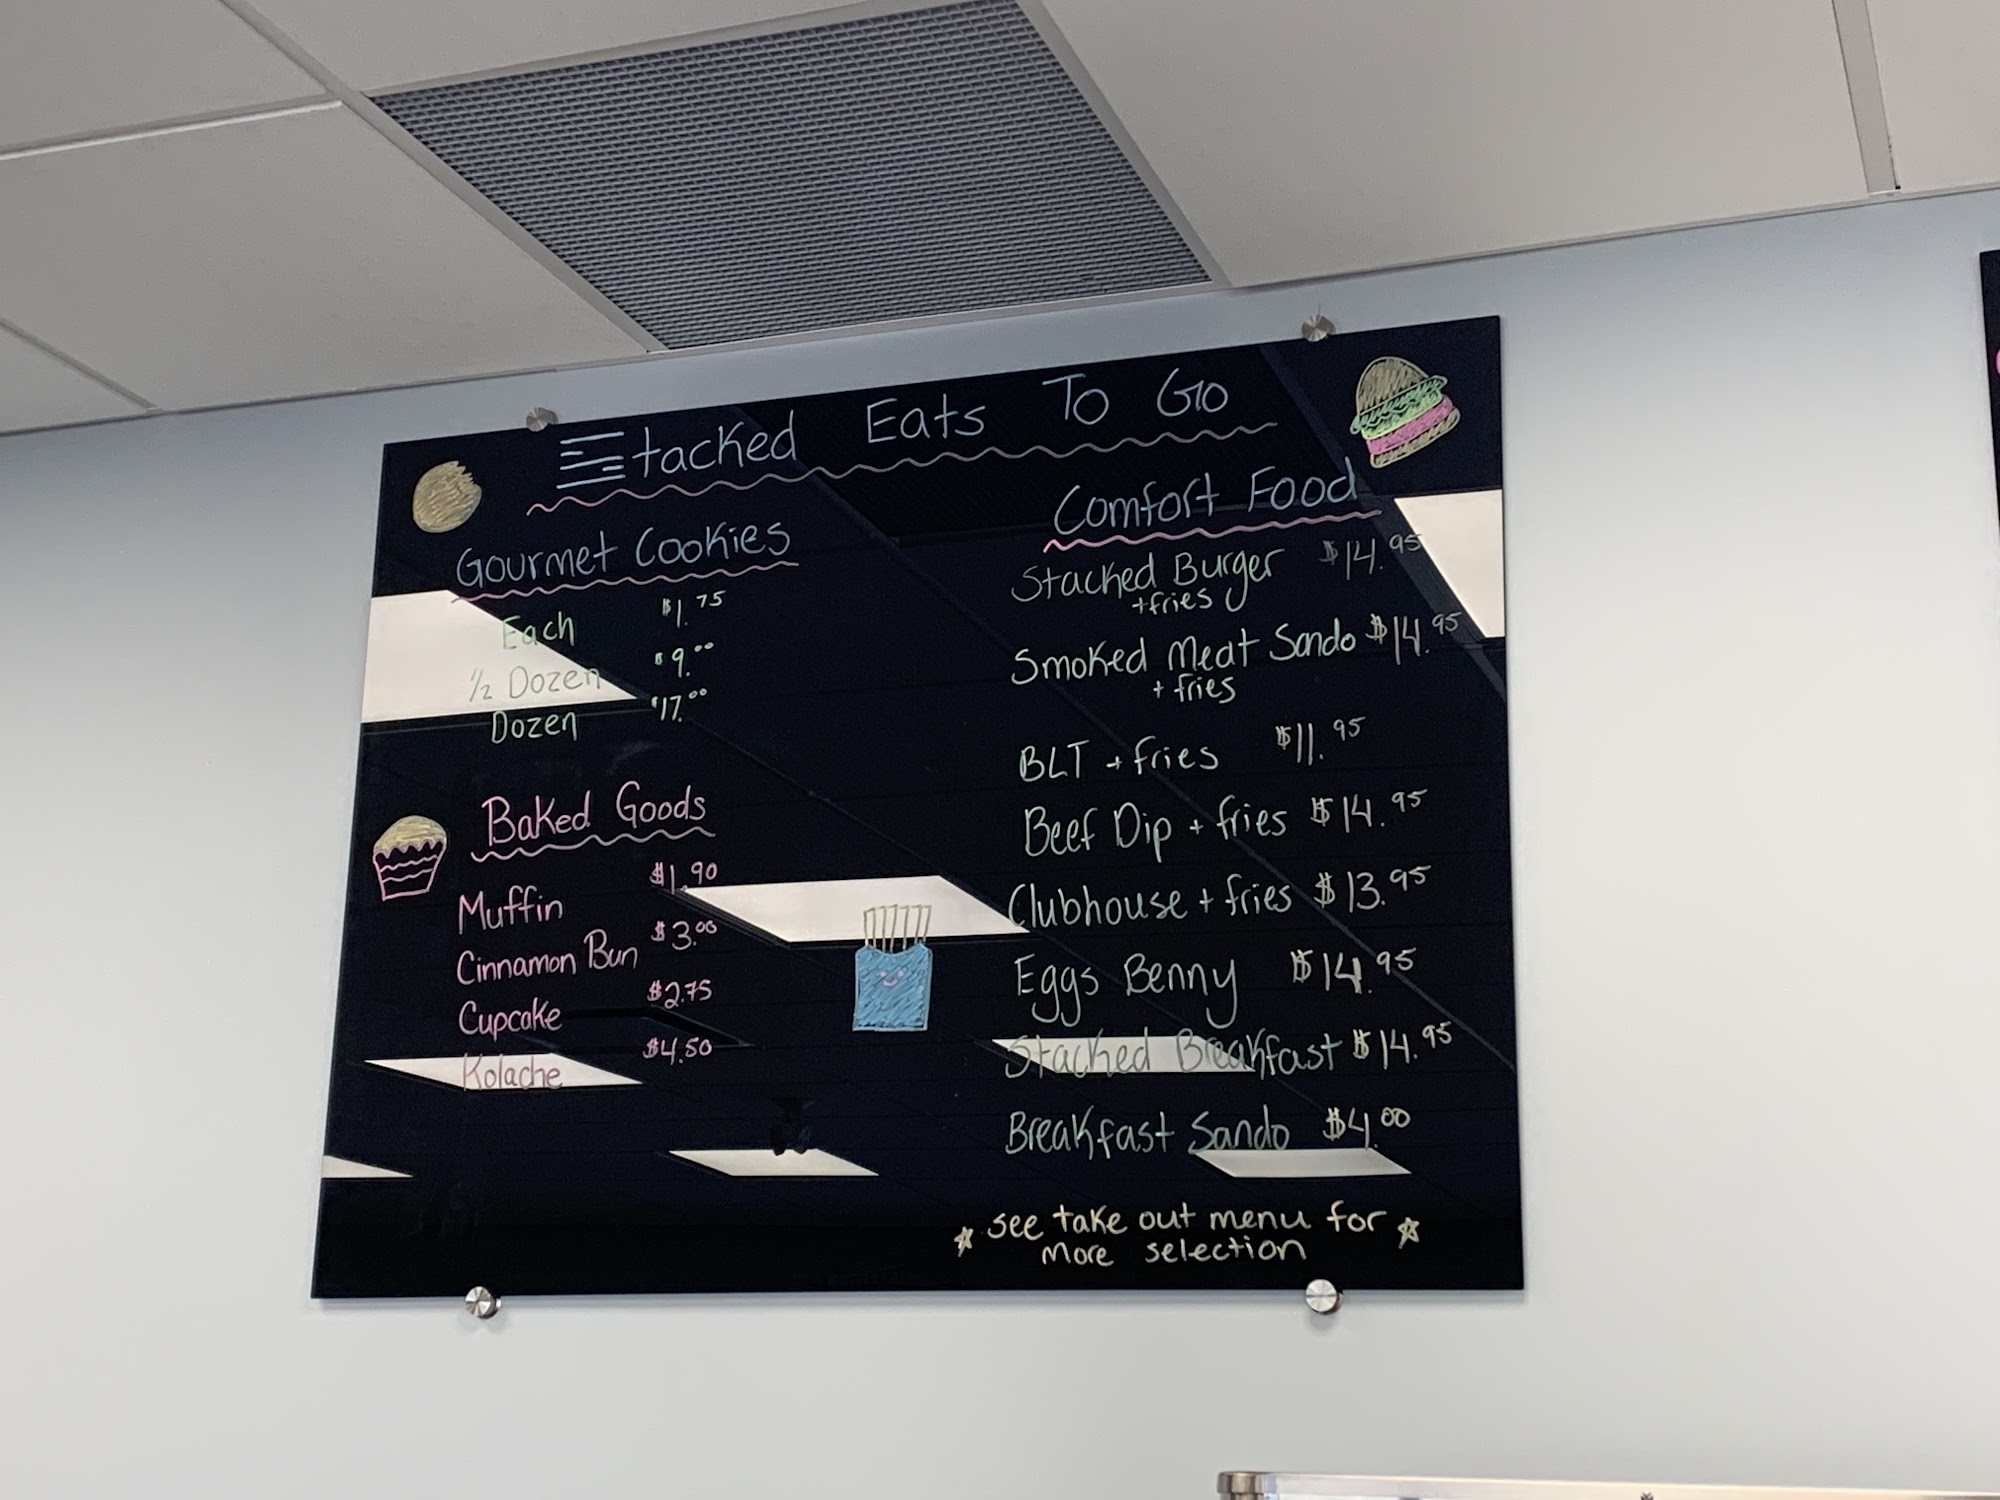 Stacked Eats To Go
Gourmet Cookies
Each $1.75
1/2 Dozen $9.00
Dozen $17.00
Baked Goods
Muffin $1.90
Cinnamon Bun $3.00
Cupcake $2.75
Kolache $4.50
Comfort Food
Stacked Burger $14.95
+fries
Smoked Meat Sando $14.95
+ fries
BLT + fries $11.95
Beef Dip + fries $14.95
Clubhouse + fries $13.95
Eggs Benny $14.95
Stacked Breakfast $14.95
Breakfast Sando $4.00
☆ see take out menu for ☆
more selection